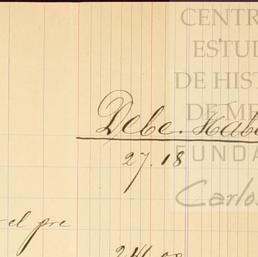 CENTR
ESTU
DE HIST
DE ME
Debe. Habe
27.18
FUNDA
Carlos
el pre